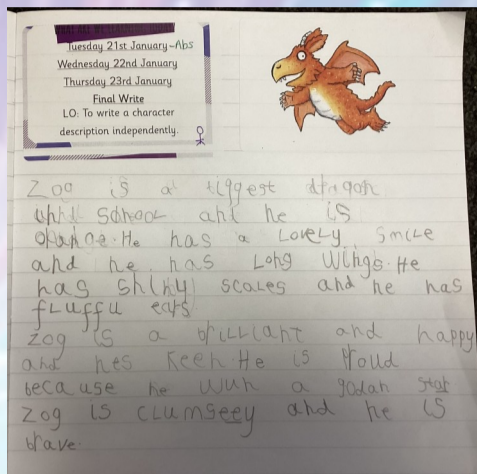 Tuesday 21st January -Abs
Wednesday 22nd January
Thursday 23rd January
Final Write
LO: To write a character
description independently.
Zog is a tiggest dragon
school and he is
orange. He has a Lovely smile
and he has Long wings. He
has shiny scales and he has
fLuffu ears.
Zog is a brilliant and happy
and hes Keen. He is Proud
because he wun a goldan star
Zog is CLumseey and he is
brave.